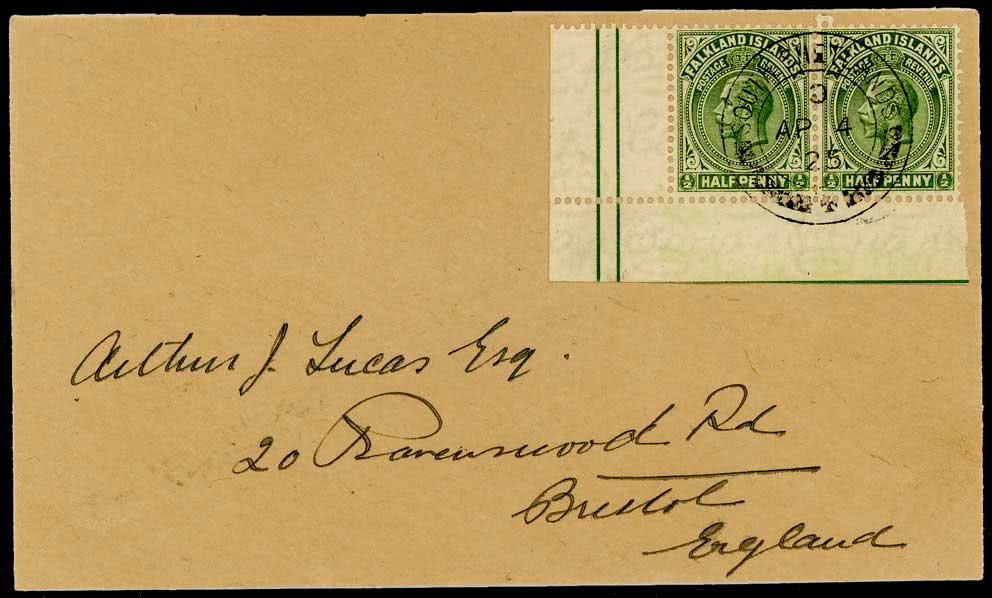 FALKLAND ISLANDS FALKLAND ISLANDS
POSTAGE REVENUE POSTAGE REVENUE
AP 4
25
½ HALFPENNY ½ ½ HALFPENNY ½
Arthur J. Lucas Esq.
20 Ravenswood Rd
Bristol
England